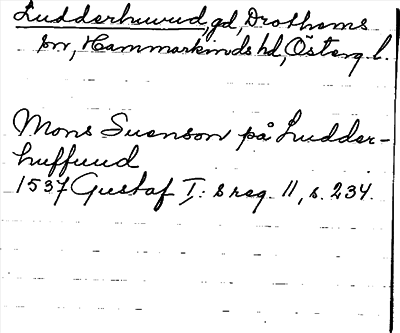 Ludderhuvud, gd, Drothems
sn, Hammarkinds hd, Österg. l.
Mons Suenson på Ludder-
huffuud
1537 Gustaf I: s reg. 11, s. 234.